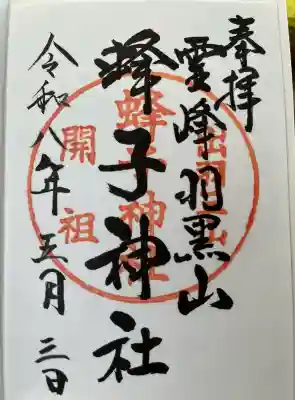 奉拝
霊峰羽黒山
蜂子神社
令和八年五月三日
出羽三山
蜂子神社
開祖